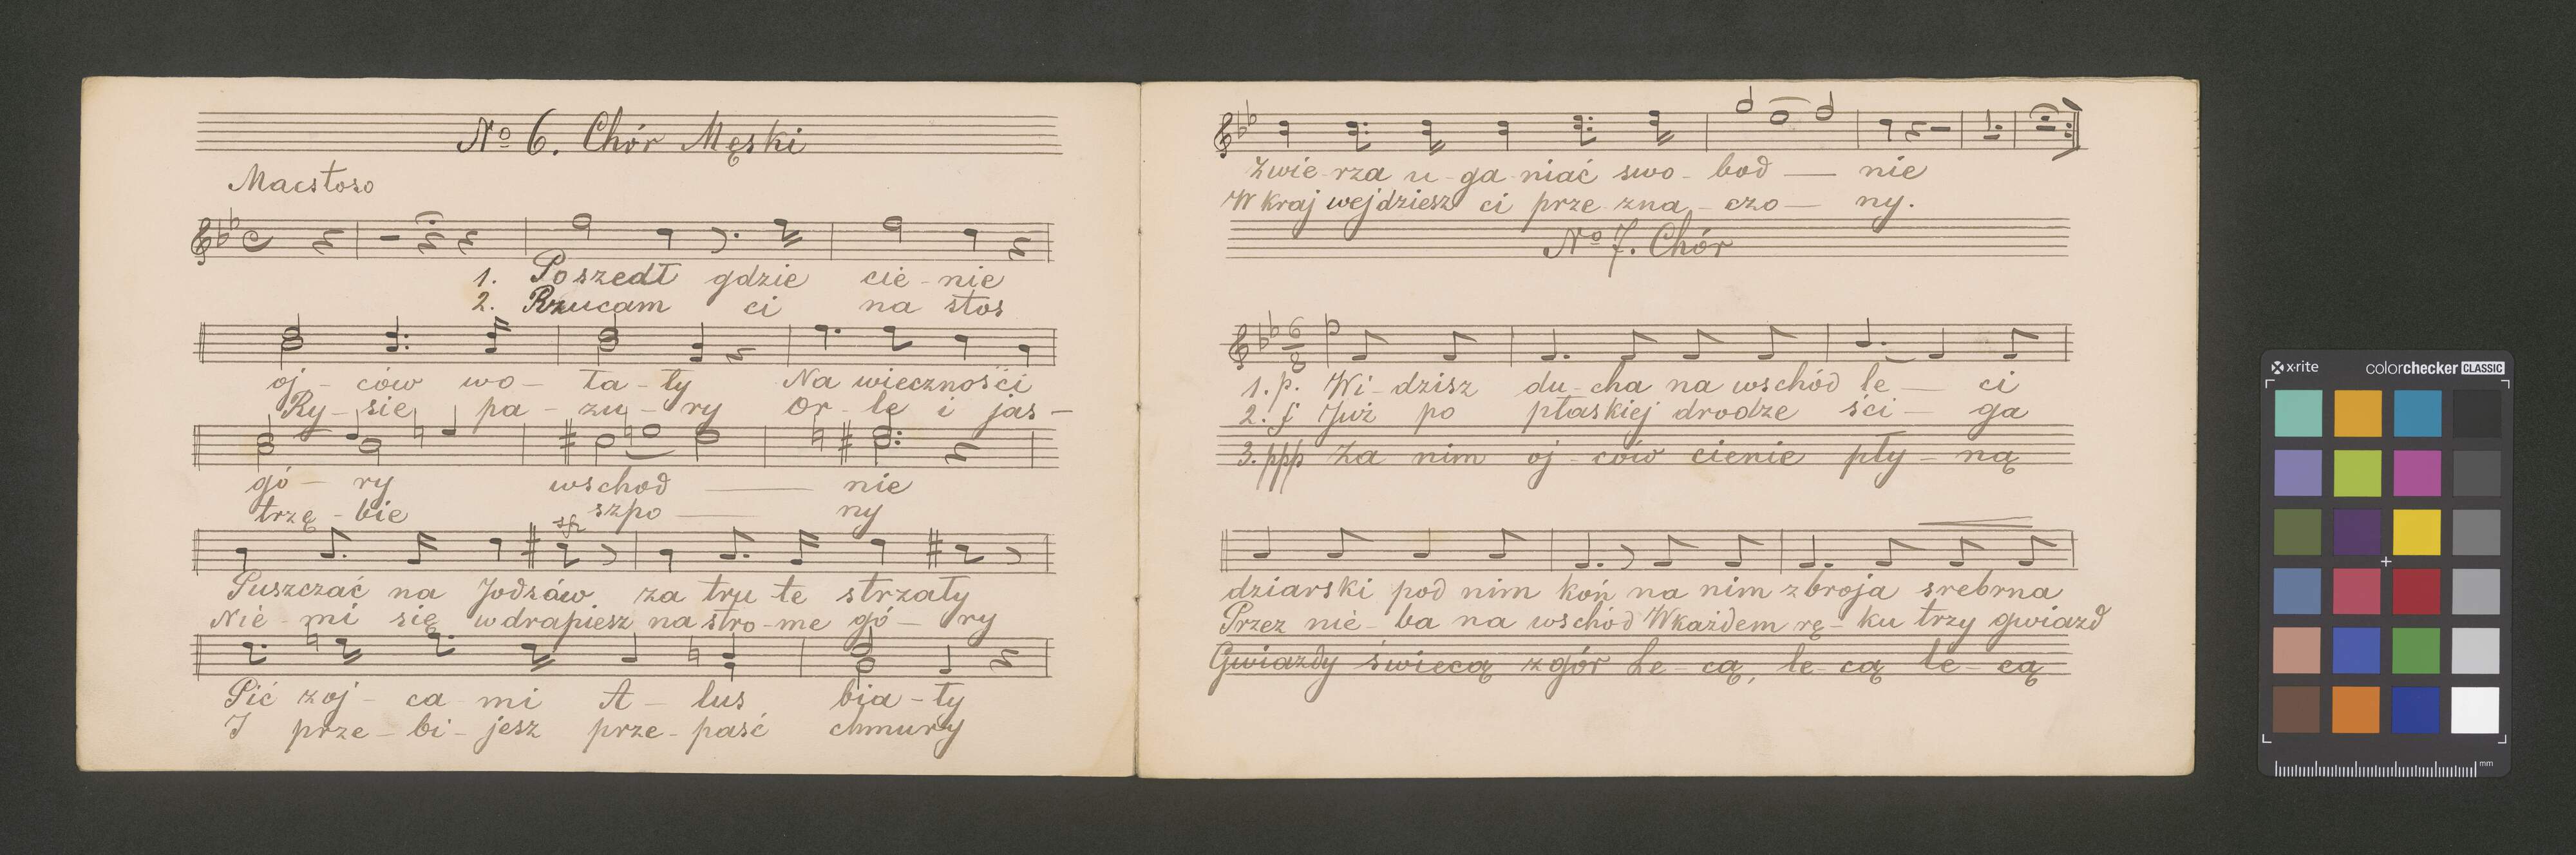 No 6. Chór Męski
Maestoso
1. Poszedł gdzie cie - nie
2. Rzucam ci na stos
oj - ców wo - ła - ły Na wieczności
Ry - sie pa - zu - ry Or - le i jas -
gó - ry wschod — nie
trzę - bie szpo — ny
sf
Puszczać na Jodsów za tru - te strzały
Nie - mi się wdrapiesz na stro - me gó - ry
Pić z oj - ca - mi A - lus bia - ły
I prze - bi - jesz prze - paść chmury
Zwie - rza u - ga - niać swo - bod — nie
W kraj wejdziesz ci prze - zna - czo — ny.
No 7. Chór
6
8
1. p. Wi - dzisz du - cha na wschód le — ci
2. f Już po płaskiej drodze ści — ga
3. ppp Za nim oj - ców cienie pły - ną
dziarski pod nim koń na nim zbroja srebrna
Przez nie - ba na wschód W każdem rę - ku trzy gwiazd
Gwiazdy świecą z gór Le - cą, le - cą le - cą
x·rite colorchecker CLASSIC
mm